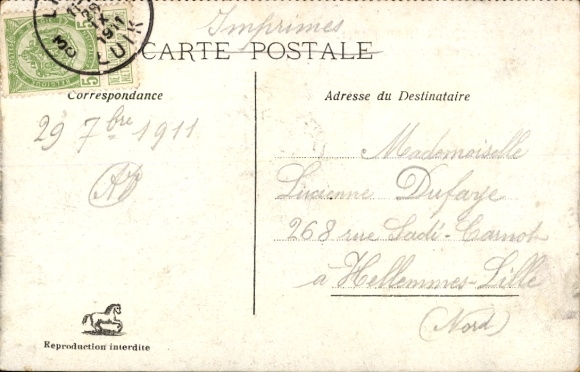 Imprimés
CARTE POSTALE
Correspondance
Adresse du Destinataire
29 7bre 1911
Mademoiselle
Lucienne Dufaye
268 rue Sadi-Carnot
à Hellemmes-Lille
(Nord)
Reproduction interdite
5
LUIK